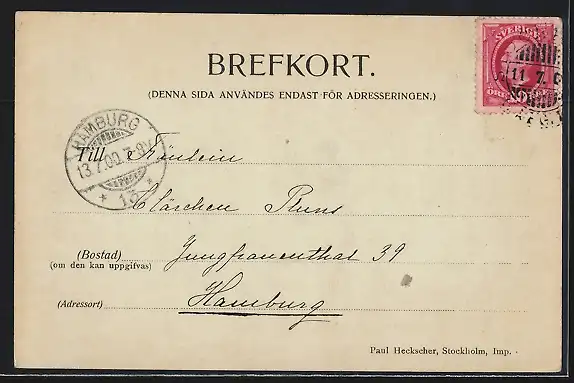 BREFKORT.
(DENNA SIDA ANVÄNDES ENDAST FÖR ADRESSERINGEN.)
SVERIGE
11.7.
HAMBURG
13.7.00.7-8V.
* 1d *
Till Fräulein
Clärchen Pluns
(Bostad) Jungfrauenthal 39
(om den kan uppgifvas)
(Adressort) Hamburg
Paul Heckscher, Stockholm, Imp.